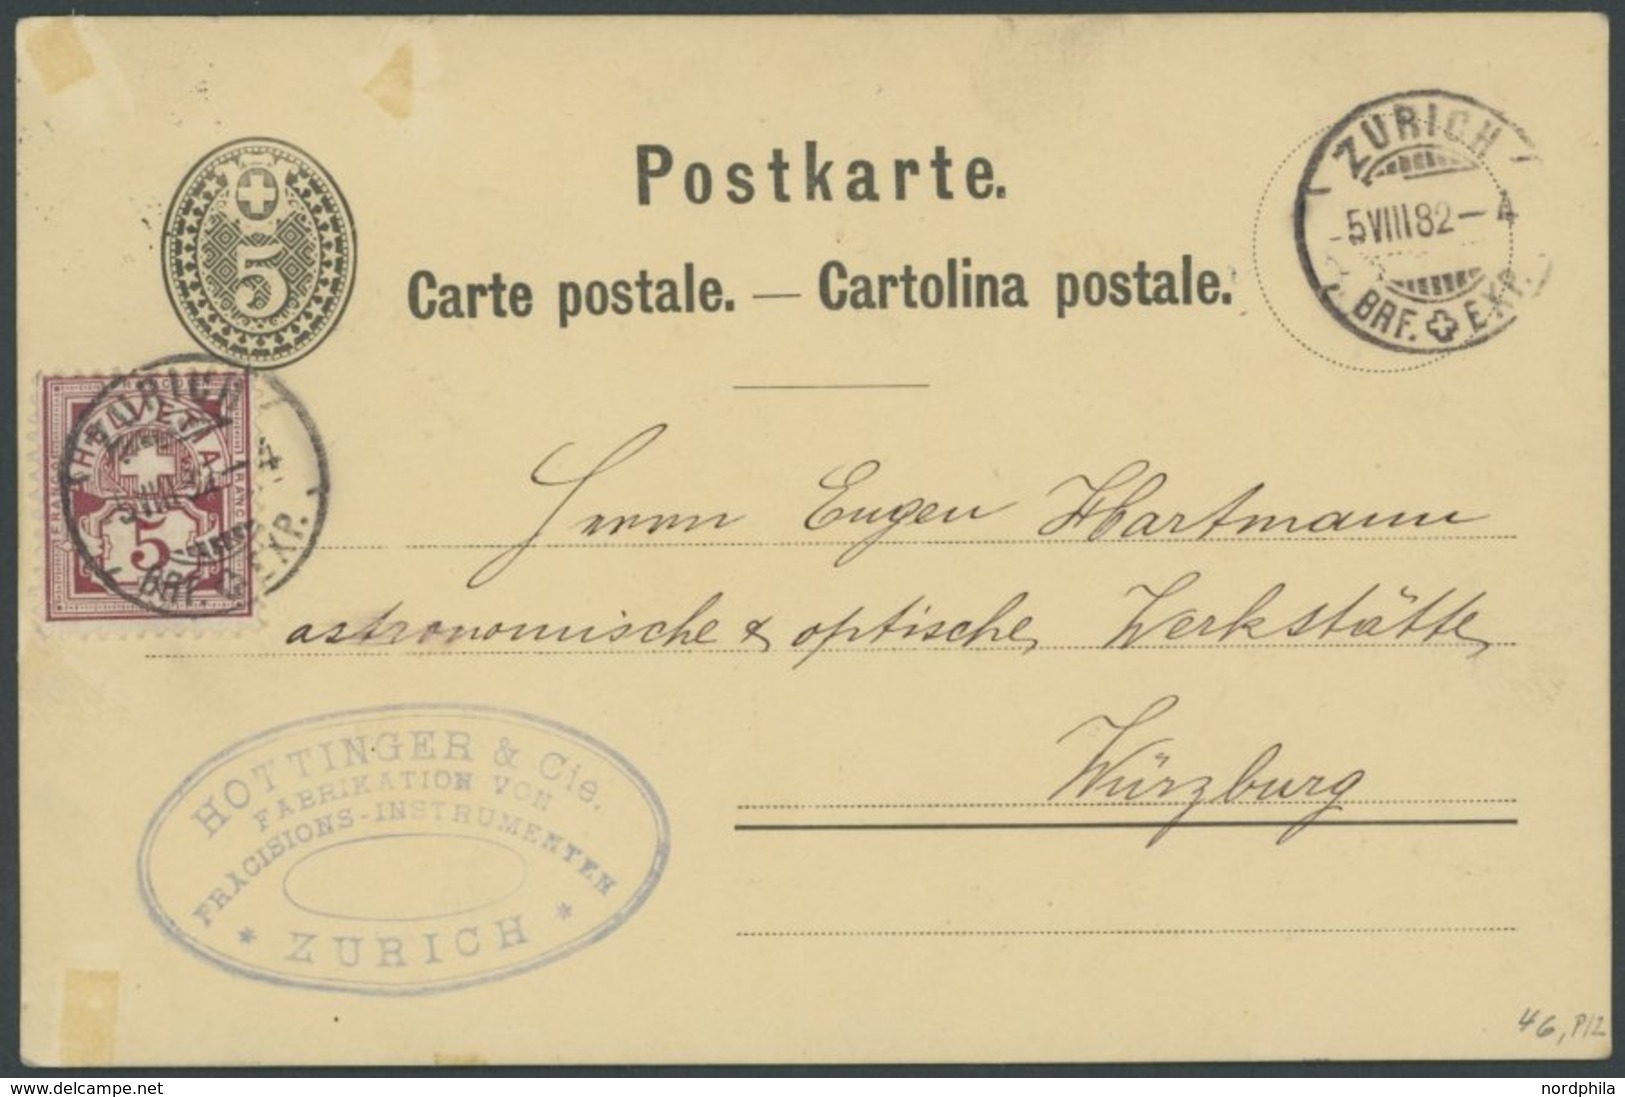 Postkarte.
Carte postale. — Cartolina postale.
5
ZÜRICH
5VIII82-4
BRF. EXP.
HELVETIA
FRANCO
5
ZÜRICH
5VIII82-4
BRF. EXP.
Herrn Eugen Hartmann
astronomische & optische Werkstätte
Würzburg
HOTTINGER & Cie.
FABRIKATION VON
PRÄCISIONS-INSTRUMENTEN
* ZÜRICH *
46, P12
www.delcampe.net
nordphila